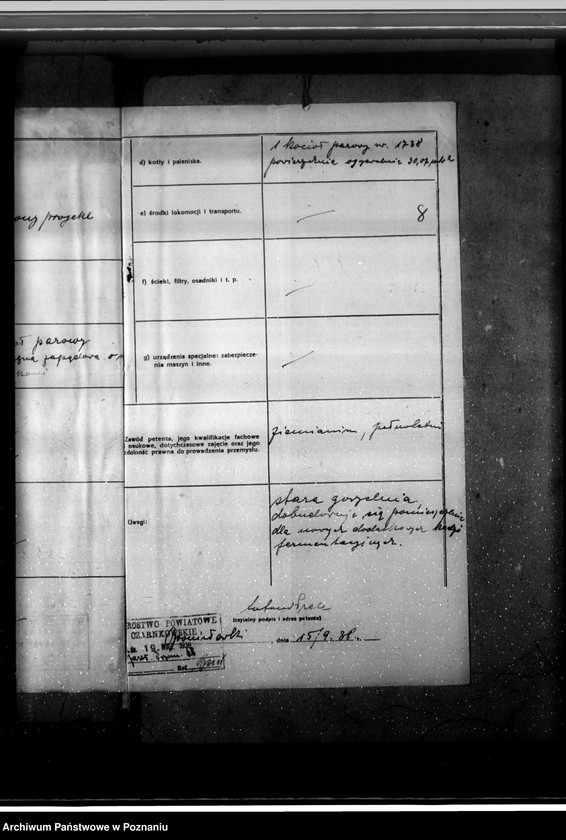 ony projekt
parowy
d) kotły i paleniska.
1 kocioł parowy nr. 1738
powierzchnia ogrzewalna 30,07
e) środki lokomocji i transportu.
8
f) ścieki, filtry, osadniki i t. p.
g) urządzenia specjalne: zabezpiecze-
nia maszyn i inne.
Zawód petenta, jego kwalifikacje fachowe
naukowe, dotychczasowe zajęcie oraz jego
zdolność prawna do prowadzenia przemysłu.
ziemianin, pełnoletni
Uwagi:
stara gorzelnia
dobudowuje się pomieszczenie
dla nowych dodatkowych kadzi
fermentacyjnych.
(czytelny podpis i adres petenta)
ROSTWO POWIATOWE
CZARNKOWSKIE
, dnia 15/9. 38 r.
Ref
Archiwum Państwowe w Poznaniu